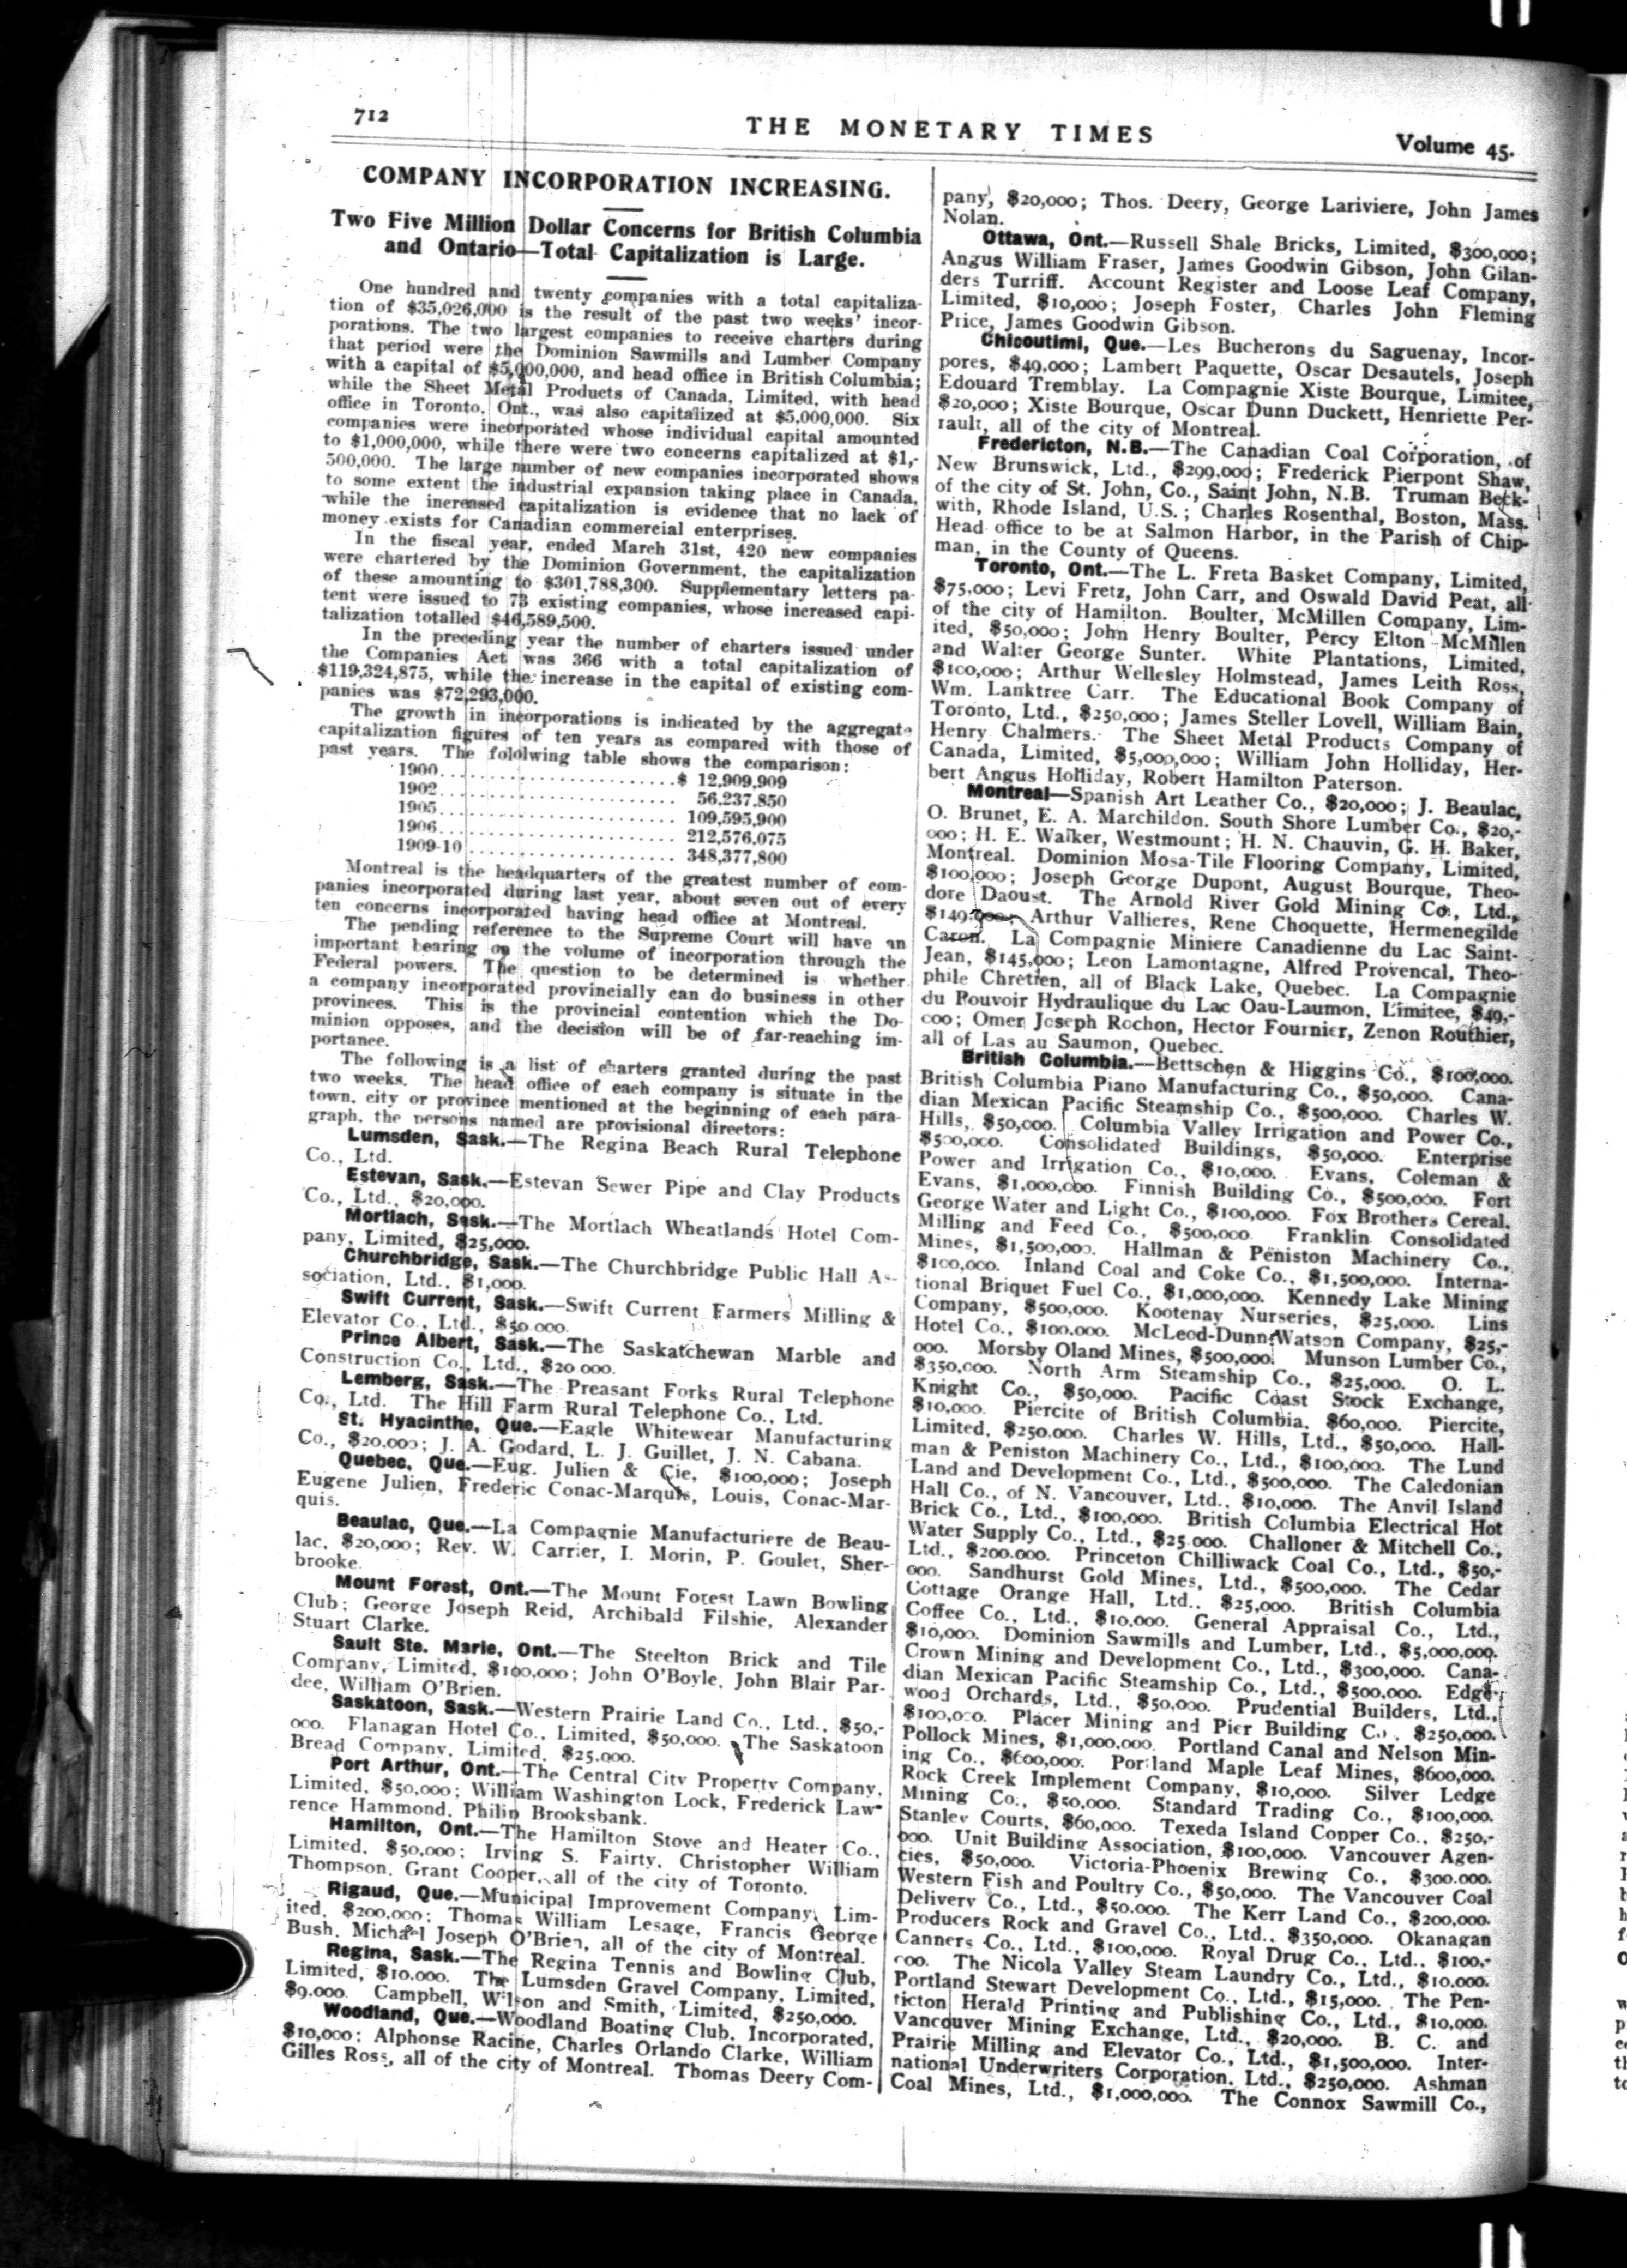 712
THE MONETARY TIMES
Volume 45.
COMPANY INCORPORATION INCREASING.
Two Five Million Dollar Concerns for British Columbia
and Ontario—Total Capitalization is Large.
One hundred and twenty companies with a total capitaliza-
tion of $35,026,000 is the result of the past two weeks' incor-
porations. The two largest companies to receive charters during
that period were the Dominion Sawmills and Lumber Company
with a capital of $5,000,000, and head office in British Columbia;
while the Sheet Metal Products of Canada, Limited, with head
office in Toronto, Ont., was also capitalized at $5,000,000. Six
companies were incorporated whose individual capital amounted
to $1,000,000, while there were two concerns capitalized at $1,-
500,000. The large number of new companies incorporated shows
to some extent the industrial expansion taking place in Canada,
while the increased capitalization is evidence that no lack of
money exists for Canadian commercial enterprises.
In the fiscal year, ended March 31st, 420 new companies
were chartered by the Dominion Government, the capitalization
of these amounting to $301,788,300. Supplementary letters pa-
tent were issued to 73 existing companies, whose increased capi-
talization totalled $46,589,500.
In the preceding year the number of charters issued under
the Companies Act was 366 with a total capitalization of
$119,324,875, while the increase in the capital of existing com-
panies was $72,293,000.
The growth in incorporations is indicated by the aggregate
capitalization figures of ten years as compared with those of
past years. The fololwing table shows the comparison:
1900..........................$ 12,909,909
1902.......................... 56,237,850
1905.......................... 109,595,900
1906.......................... 212,576,075
1909-10....................... 348,377,800
Montreal is the headquarters of the greatest number of com-
panies incorporated during last year, about seven out of every
ten concerns incorporated having head office at Montreal.
The pending reference to the Supreme Court will have an
important bearing on the volume of incorporation through the
Federal powers. The question to be determined is whether
a company incorporated provincially can do business in other
provinces. This is the provincial contention which the Do-
minion opposes, and the decision will be of far-reaching im-
portance.
The following is a list of charters granted during the past
two weeks. The head office of each company is situate in the
town, city or province mentioned at the beginning of each para-
graph, the persons named are provisional directors:
Lumsden, Sask.—The Regina Beach Rural Telephone
Co., Ltd.
Estevan, Sask.—Estevan Sewer Pipe and Clay Products
Co., Ltd., $20,000.
Mortlach, Sask.—The Mortlach Wheatlands Hotel Com-
pany, Limited, $25,000.
Churchbridge, Sask.—The Churchbridge Public Hall As-
sociation, Ltd., $1,000.
Swift Current, Sask.—Swift Current Farmers Milling &
Elevator Co., Ltd., $50.000.
Prince Albert, Sask.—The Saskatchewan Marble and
Construction Co., Ltd., $20 000.
Lemberg, Sask.—The Preasant Forks Rural Telephone
Co., Ltd. The Hill Farm Rural Telephone Co., Ltd.
St. Hyacinthe, Que.—Eagle Whitewear Manufacturing
Co., $20.000; J. A. Godard, L. J. Guillet, J. N. Cabana.
Quebec, Que.—Eug. Julien & Cie, $100,000; Joseph
Eugene Julien, Frederic Conac-Marquis, Louis, Conac-Mar-
quis.
Beaulac, Que.—La Compagnie Manufacturiere de Beau-
lac, $20,000; Rev. W. Carrier, I. Morin, P. Goulet, Sher-
brooke.
Mount Forest, Ont.—The Mount Forest Lawn Bowling
Club; George Joseph Reid, Archibald Filshie, Alexander
Stuart Clarke.
Sault Ste. Marie, Ont.—The Steelton Brick and Tile
Company, Limited, $100,000; John O'Boyle, John Blair Par-
dee, William O'Brien.
Saskatoon, Sask.—Western Prairie Land Co., Ltd., $50,-
000. Flanagan Hotel Co., Limited, $50,000. The Saskatoon
Bread Company, Limited, $25,000.
Port Arthur, Ont.—The Central City Property Company,
Limited, $50,000; William Washington Lock, Frederick Law-
rence Hammond, Philip Brooksbank.
Hamilton, Ont.—The Hamilton Stove and Heater Co.,
Limited, $50,000; Irving S. Fairty, Christopher William
Thompson, Grant Cooper, all of the city of Toronto.
Rigaud, Que.—Municipal Improvement Company, Lim-
ited, $200,000; Thomas William Lesage, Francis George
Bush, Michael Joseph O'Brien, all of the city of Montreal.
Regina, Sask.—The Regina Tennis and Bowling Club,
Limited, $10.000. The Lumsden Gravel Company, Limited,
$9.000. Campbell, Wilson and Smith, Limited, $250,000.
Woodland, Que.—Woodland Boating Club, Incorporated,
$10,000; Alphonse Racine, Charles Orlando Clarke, William
Gilles Ross, all of the city of Montreal. Thomas Deery Com-
pany, $20,000; Thos. Deery, George Lariviere, John James
Nolan.
Ottawa, Ont.—Russell Shale Bricks, Limited, $300,000;
Angus William Fraser, James Goodwin Gibson, John Gilan-
ders Turriff. Account Register and Loose Leaf Company,
Limited, $10,000; Joseph Foster, Charles John Fleming
Price, James Goodwin Gibson.
Chicoutimi, Que.—Les Bucherons du Saguenay, Incor-
pores, $49,000; Lambert Paquette, Oscar Desautels, Joseph
Edouard Tremblay. La Compagnie Xiste Bourque, Limitee,
$20,000; Xiste Bourque, Oscar Dunn Duckett, Henriette Per-
rault, all of the city of Montreal.
Fredericton, N.B.—The Canadian Coal Corporation, of
New Brunswick, Ltd., $299,000; Frederick Pierpont Shaw,
of the city of St. John, Co., Saint John, N.B. Truman Beck-
with, Rhode Island, U.S.; Charles Rosenthal, Boston, Mass.
Head office to be at Salmon Harbor, in the Parish of Chip-
man, in the County of Queens.
Toronto, Ont.—The L. Freta Basket Company, Limited,
$75,000; Levi Fretz, John Carr, and Oswald David Peat, all
of the city of Hamilton. Boulter, McMillen Company, Lim-
ited, $50,000; John Henry Boulter, Percy Elton McMillen
and Walter George Sunter. White Plantations, Limited,
$100,000; Arthur Wellesley Holmstead, James Leith Ross,
Wm. Lanktree Carr. The Educational Book Company of
Toronto, Ltd., $250,000; James Steller Lovell, William Bain,
Henry Chalmers. The Sheet Metal Products Company of
Canada, Limited, $5,000,000; William John Holliday, Her-
bert Angus Holliday, Robert Hamilton Paterson.
Montreal—Spanish Art Leather Co., $20,000; J. Beaulac,
O. Brunet, E. A. Marchildon. South Shore Lumber Co., $20,-
000; H. E. Walker, Westmount; H. N. Chauvin, G. H. Baker,
Montreal. Dominion Mosa-Tile Flooring Company, Limited,
$100,000; Joseph George Dupont, August Bourque, Theo-
dore Daoust. The Arnold River Gold Mining Co., Ltd.,
Arthur Vallieres, Rene Choquette, Hermenegilde
Caron. La Compagnie Miniere Canadienne du Lac Saint-
Jean, $145,000; Leon Lamontagne, Alfred Provencal, Theo-
phile Chretien, all of Black Lake, Quebec. La Compagnie
du Pouvoir Hydraulique du Lac Oau-Laumon, Limitee, $49,-
000; Omer Joseph Rochon, Hector Fournier, Zenon Routhier,
all of Las au Saumon, Quebec.
British Columbia.—Bettschen & Higgins Co., $100,000.
British Columbia Piano Manufacturing Co., $50,000. Cana-
dian Mexican Pacific Steamship Co., $500,000. Charles W.
Hills, $50,000. Columbia Valley Irrigation and Power Co.,
$500,000. Consolidated Buildings, $50,000. Enterprise
Power and Irrigation Co., $10,000. Evans, Coleman &
Evans, $1,000,000. Finnish Building Co., $500,000. Fort
George Water and Light Co., $100,000. Fox Brothers Cereal,
Milling and Feed Co., $500,000. Franklin Consolidated
Mines, $1,500,000. Hallman & Peniston Machinery Co.,
$100,000. Inland Coal and Coke Co., $1,500,000. Interna-
tional Briquet Fuel Co., $1,000,000. Kennedy Lake Mining
Company, $500,000. Kootenay Nurseries, $25,000. Lins
Hotel Co., $100.000. McLeod-Dunn-Watson Company, $25,-
000. Morsby Oland Mines, $500,000. Munson Lumber Co.,
$350,000. North Arm Steamship Co., $25,000. O. L.
Knight Co., $50,000. Pacific Coast Stock Exchange,
$10,000. Piercite of British Columbia, $60,000. Piercite,
Limited, $250,000. Charles W. Hills, Ltd., $50,000. Hall-
man & Peniston Machinery Co., Ltd., $100,000. The Lund
Land and Development Co., Ltd., $500,000. The Caledonian
Hall Co., of N. Vancouver, Ltd., $10,000. The Anvil Island
Brick Co., Ltd., $100,000. British Columbia Electrical Hot
Water Supply Co., Ltd., $25.000. Challoner & Mitchell Co.,
Ltd., $200.000. Princeton Chilliwack Coal Co., Ltd., $50,-
000. Sandhurst Gold Mines, Ltd., $500,000. The Cedar
Cottage Orange Hall, Ltd., $25,000. British Columbia
Coffee Co., Ltd., $10,000. General Appraisal Co., Ltd.,
$10,000. Dominion Sawmills and Lumber, Ltd., $5,000,000.
Crown Mining and Development Co., Ltd., $300,000. Cana-
dian Mexican Pacific Steamship Co., Ltd., $500,000. Edge-
wood Orchards, Ltd., $50,000. Prudential Builders, Ltd.,
$100,000. Placer Mining and Pier Building Co., $250,000.
Pollock Mines, $1,000,000. Portland Canal and Nelson Min-
ing Co., $600,000. Portland Maple Leaf Mines, $600,000.
Rock Creek Implement Company, $10,000. Silver Ledge
Mining Co., $50,000. Standard Trading Co., $100,000.
Stanley Courts, $60,000. Texeda Island Copper Co., $250,-
000. Unit Building Association, $100,000. Vancouver Agen-
cies, $50,000. Victoria-Phoenix Brewing Co., $300.000.
Western Fish and Poultry Co., $50,000. The Vancouver Coal
Delivery Co., Ltd., $50.000. The Kerr Land Co., $200,000.
Producers Rock and Gravel Co., Ltd., $350,000. Okanagan
Canners Co., Ltd., $100,000. Royal Drug Co., Ltd., $100,-
000. The Nicola Valley Steam Laundry Co., Ltd., $10,000.
Portland Stewart Development Co., Ltd., $15,000. The Pen-
ticton Herald Printing and Publishing Co., Ltd., $10,000.
Vancouver Mining Exchange, Ltd., $20,000. B. C. and
Prairie Milling and Elevator Co., Ltd., $1,500,000. Inter-
national Underwriters Corporation, Ltd., $250,000. Ashman
Coal Mines, Ltd., $1,000,000. The Connox Sawmill Co.,